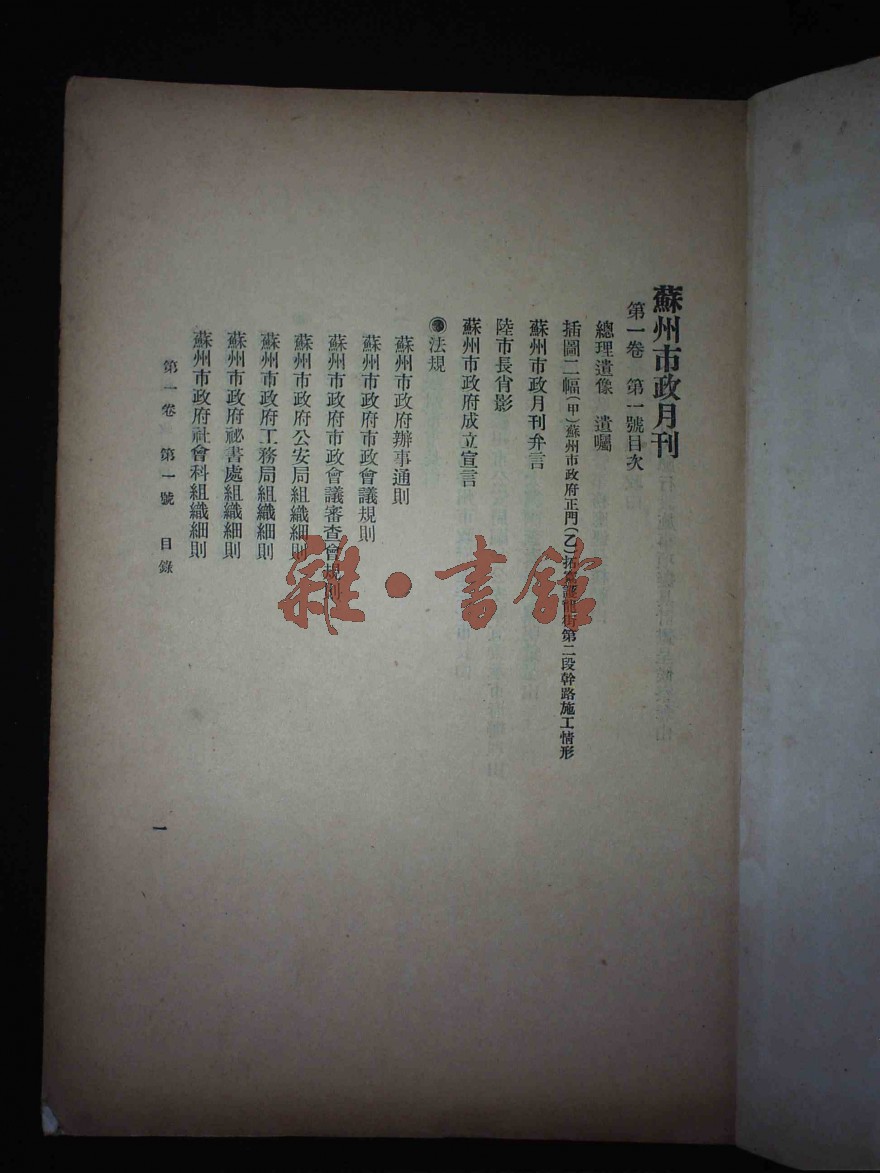 蘇州市政月刊
第一卷 第一號目次
總理遺像 遺囑
插圖二幅(甲)蘇州市政府正門(乙)拓 護龍街第二段幹路施工情形
蘇州市政月刊弁言
陸市長肖影
蘇州市政府成立宣言
法規
蘇州市政府辦事通則
蘇州市政府市政會議規則
蘇州市政府市政會議審查會規則
蘇州市政府公安局組織細則
蘇州市政府工務局組織細則
蘇州市政府祕書處組織細則
蘇州市政府社會科組織細則
第一卷 第一號 目錄
一
雜·書館